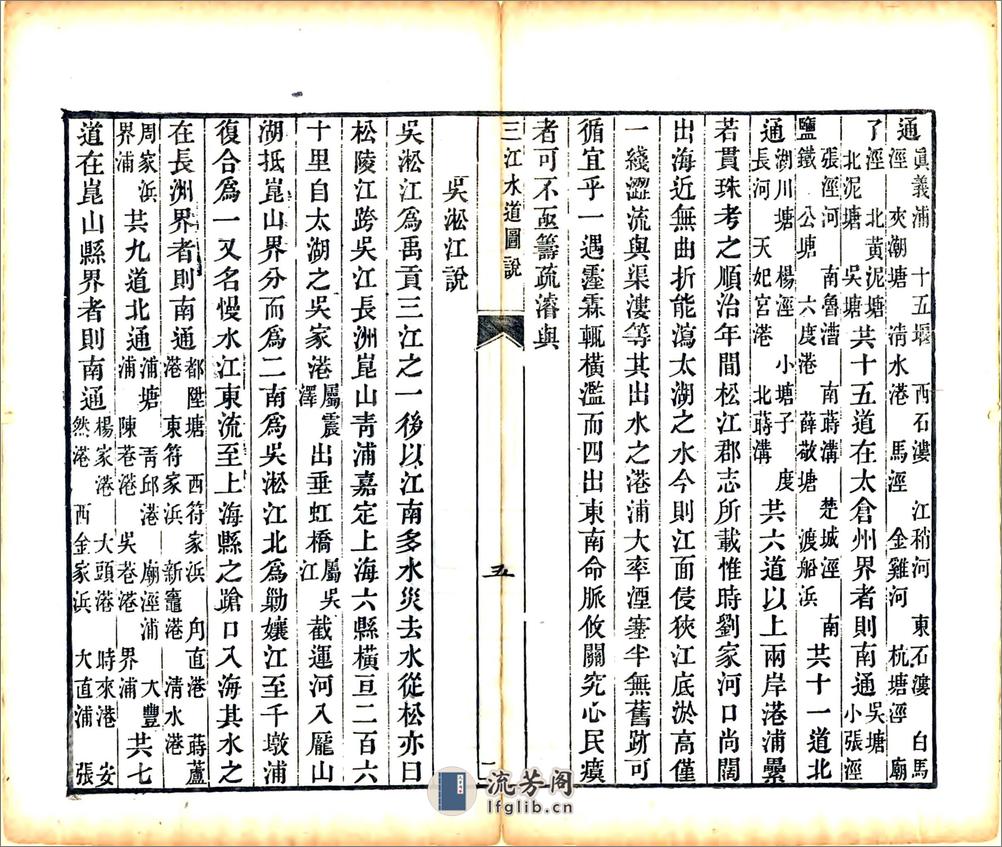 通眞義浦 十五堰 西石漊 江稍河 東石漊 白馬
涇 夾潮塘 凊水港 馬涇 金雞河 杭塘涇 廟
了涇 北黃泥塘
北泥塘 吳塘共十五道在太倉州界者則南通吳塘
小張涇
張涇河 南魯漕 南蒔溝 楚城涇 南
鹽鐵 公塘 六度港 薛敬塘 渡船浜共十一道北
通湖川塘 楊涇 小塘子 度
長河 天妃宮港 北蒔溝共六道以上兩岸港浦纍
若貫珠考之順治年間松江郡志所載惟時劉家河口尚闊
出海近無曲折能瀉太湖之水今則江面侵狹江底淤高僅
一綫澀流與渠漊等其出水之港浦大率湮塞半無舊跡可
循宜乎一遇霪霖輒橫濫而四出東南命脈攸關究心民瘼
者可不亟籌疏濬與
三江水道圖說 五
吳淞江說
吳淞江爲禹貢三江之一後以江南多水災去水從松亦曰
松陵江跨吳江長洲崑山靑浦嘉定上海六縣橫亘二百六
十里自太湖之吳家港屬震
澤出垂虹橋屬吳
江截運河入龐山
湖抵崑山界分而爲二南爲吳淞江北爲勦孃江至千墩浦
復合爲一又名慢水江東流至上海縣之蹌口入海其水之
在長洲界者則南通都陞塘 西符家浜 角直港 蒔蘆
港 東符家浜 新竈港 凊水港
周家浜
界浦共九道北通浦塘 靑邱港 廟涇浦 大豐
浦 陳巷港 吳巷港 界浦共七
道在崑山縣界者則南通楊家港 大頭港 時來港 安
然港 西金家浜 大直浦 張
流芳阁
lfglib.cn